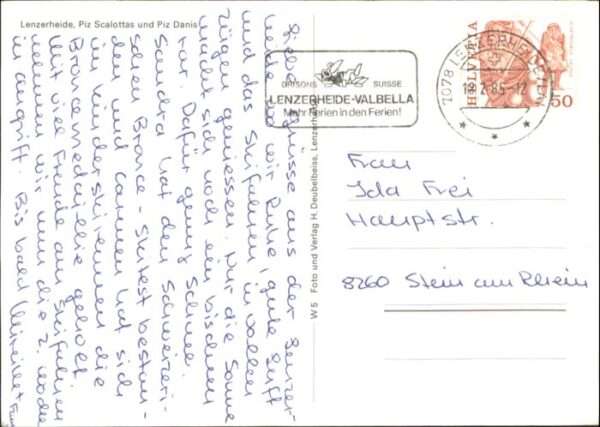 Lenzerheide, Piz Scalottas und Piz Danis
Liebe Grüsse aus der Lenzer-
heide, wo wir Ruhe, gute Luft
und das Skifahren in vollen
Zügen geniessen. Nur die Sonne
macht sich noch ein bisschen
rar. Dafür genug Schnee.
Sandra hat den Schweizeri-
schen Bronce-Skitest bestan-
den und Carmen hat sich
im Kinderskirennen die
Broncemedaille geholt.
Mit viel Freude am Skifahren
nehmen wir nun die 2. Woche
in Angriff. Bis bald
W 5 Foto und Verlag H. Deubelbeiss, Lenzerheide
GRISONS SUISSE
LENZERHEIDE-VALBELLA
Mehr Ferien in den Ferien!
7078 LENZERHEIDE/LAI
85-12
HELVETIA
50
Frau
Ida Frei
Hauptstr.
8260 Stein am Rhein